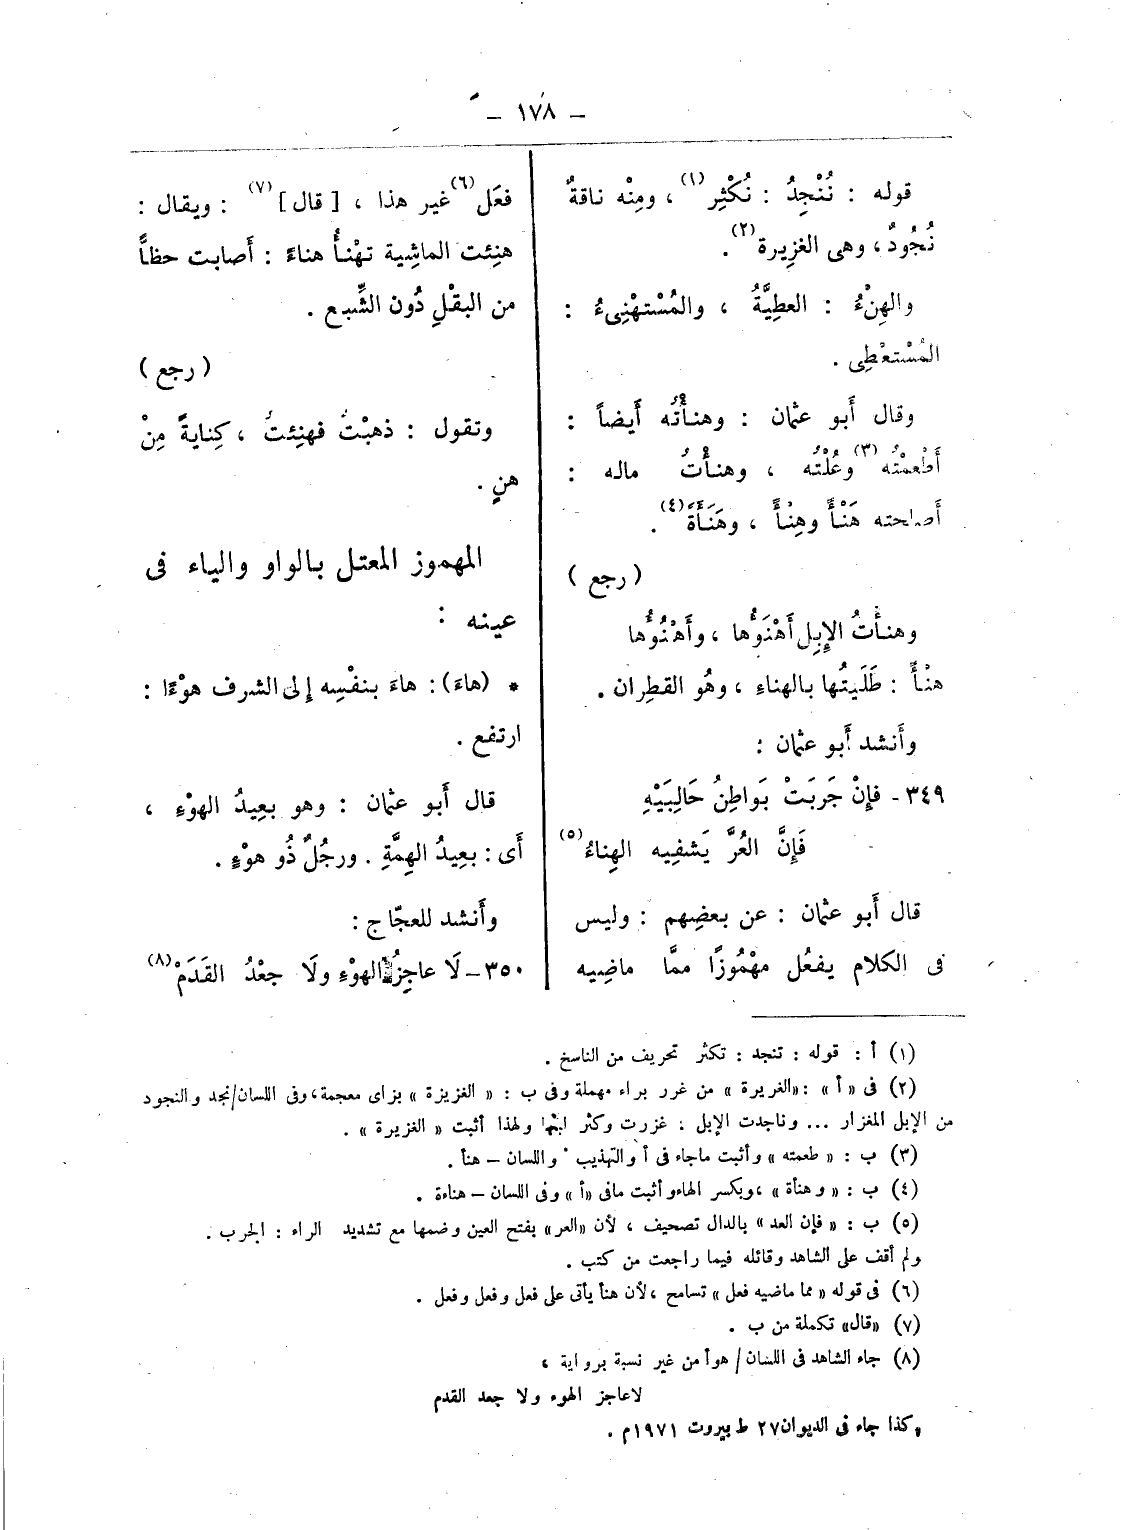 – ١٧٨ –
قوله : نُنْجِدُ : نُكْثِر (١) ، ومِنْه ناقةٌ
نُجُودٌ ، وهى الغزِيرة (٢) .
والهِنْءُ : العطِيَّةُ ، والمُسْتهْنِىءُ :
المُسْتعْطِى .
وقال أَبو عثمان : وهنأْتُه أَيضاً :
أَطْعمْتُه (٣) وعُلْتُه ، وهنأْتُ ماله :
أَصلحته هَنْأً وهِنْأً ، وهَنَأَةً (٤) .
( رجع )
وهنأْتُ الإِبِل أَهْنَؤُها ، وأَهْنُؤُها
هنْأً : طَلَيتُها بالهناءِ ، وهُو القطِران .
وأَنشد أَبو عثمان :
٣٤٩- فإِنْ جَرِبَتْ بَواطِنُ حَالِبَيْهِ
فَإِنَّ العُرَّ يَشفِيه الهِناءُ (٥)
قال أَبو عثمان : عن بعضِهم : وليس
فى الكلام يفعُل مهْمُوزًا ممَّا ماضِيه
فعَل (٦) غير هذا ، [ قال ] (٧) : ويقال :
هنِئت الماشِية تهْنأُ هناءً : أَصابت حظاًّ
من البقْلِ دُون الشِّبع .
( رجع )
وتقول : ذهبْتُ فهنِئتُ ، كِنايةً مِنْ
هنٍ .
المهموز المعتل بالواو والياء فى
عينه :
* (هاءَ) : هاءَ بنفْسِه إِلى الشرف هوْءًا :
ارتفع .
قال أَبو عثمان : وهو بعِيدُ الهوْءِ ،
أَى : بعِيدُ الهِمَّةِ . ورجُلٌ ذُو هوْءٍ .
وأَنشد للعجّاج :
٣٥٠– لَا عاجِزُ الهوْءِ ولَا جعْدُ القَدَمْ (٨)
(١) أ : قوله : تنجد : تكثر تحريف من الناسخ .
(٢) فى « أ » : «الغريرة » من غرر براء مهملة وفى ب : « الغزيزة » بزاى معجمة ، وفى اللسان/نجد والنجود
من الإبل المغزار ... وناجدت الإبل : غزرت وكثر لبنها ولهذا أثبت « الغزيرة » .
(٣) ب : « طعمته » وأثبت ماجاء فى أ والتهذيب واللسان – هنأ .
(٤) ب : « وهنأة » ، وبكسر الهاء وأثبت مافى «أ » وفى اللسان – هناءة .
(٥) ب : « فإن العد » بالدال تصحيف ، لأن «العر» بفتح العين وضمها مع تشديد الراء : الجرب .
ولم أقف على الشاهد وقائله فيما راجعت من كتب .
(٦) فى قوله « مما ماضيه فعل » تسامح ، لأن هنأ يأتى على فعل وفعل وفعل .
(٧) «قال» تكملة من ب .
(٨) جاء الشاهد فى اللسان / هوأ من غير نسبة برواية ،
لاعاجز الهوء ولا جعد القدم
وكذا جاء فى الديوان ٢٧ ط بيروت ١٩٧١م .